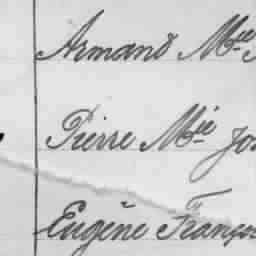 Armand Mie
Pierre Mie Jos
Eugène Franços